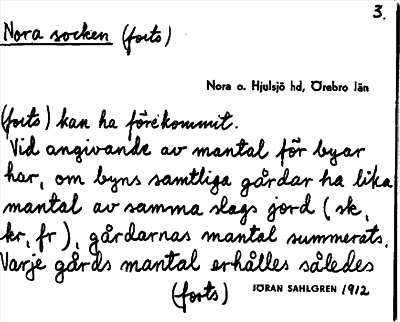 3.
Nora socken (forts)
Nora o. Hjulsjö hd, Örebro län
(forts) kan ha förekommit.
Vid angivande av mantal för byar
har, om byns samtliga gårdar ha lika
mantal av samma slags jord (sk,
kr, fr), gårdarnas mantal summerats.
Varje gårds mantal erhålles således
(forts) JÖRAN SAHLGREN 1912